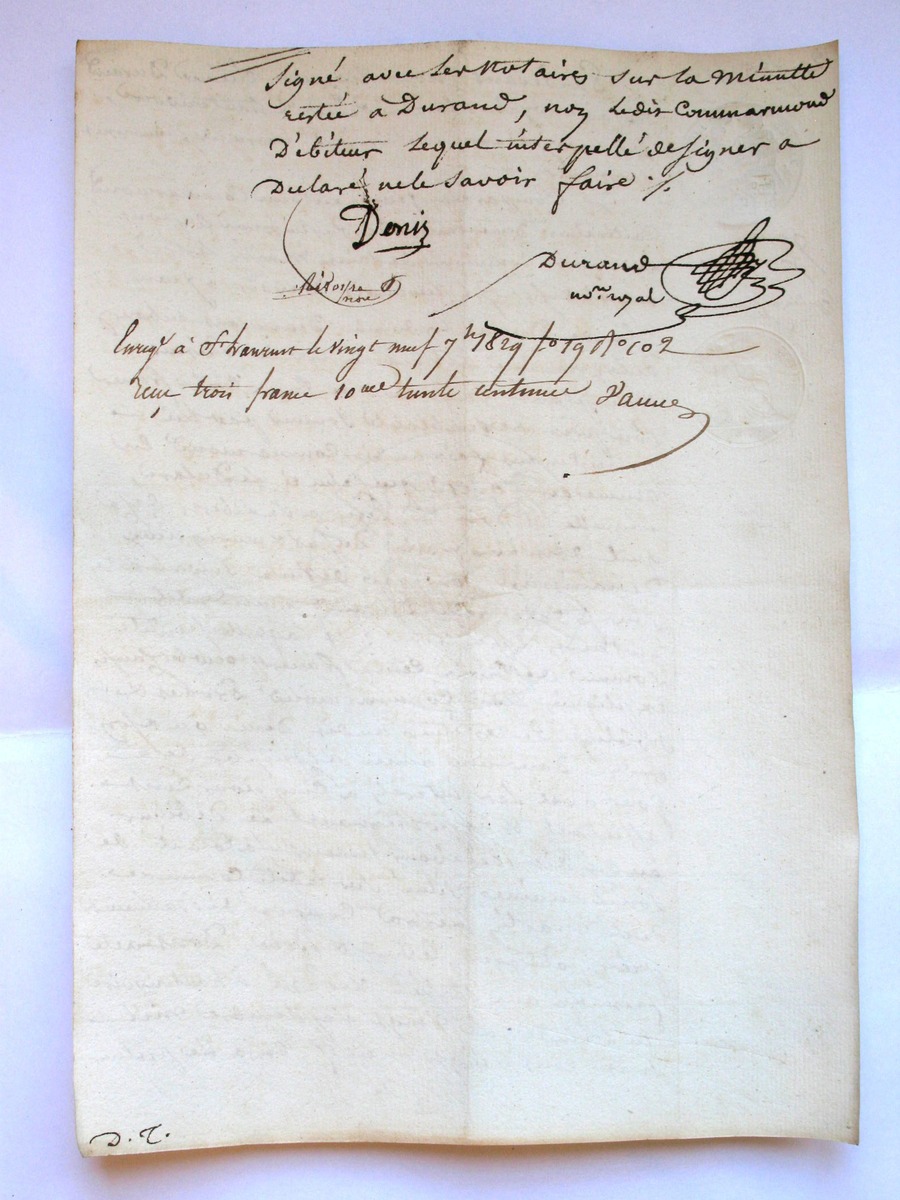 Signé avec les Notaires sur la Minutte
restée à Durand, non ledit Commarmond
Débiteur lequel interpellé de signer a
Déclaré ne le savoir faire ./.
Denis
Durand
no.re royal
nore
Enregt à St Laurent le vingt neuf 7b 1829 fo 19 Ro co 2
reçu trois francs 10me trente centimes
D. T.